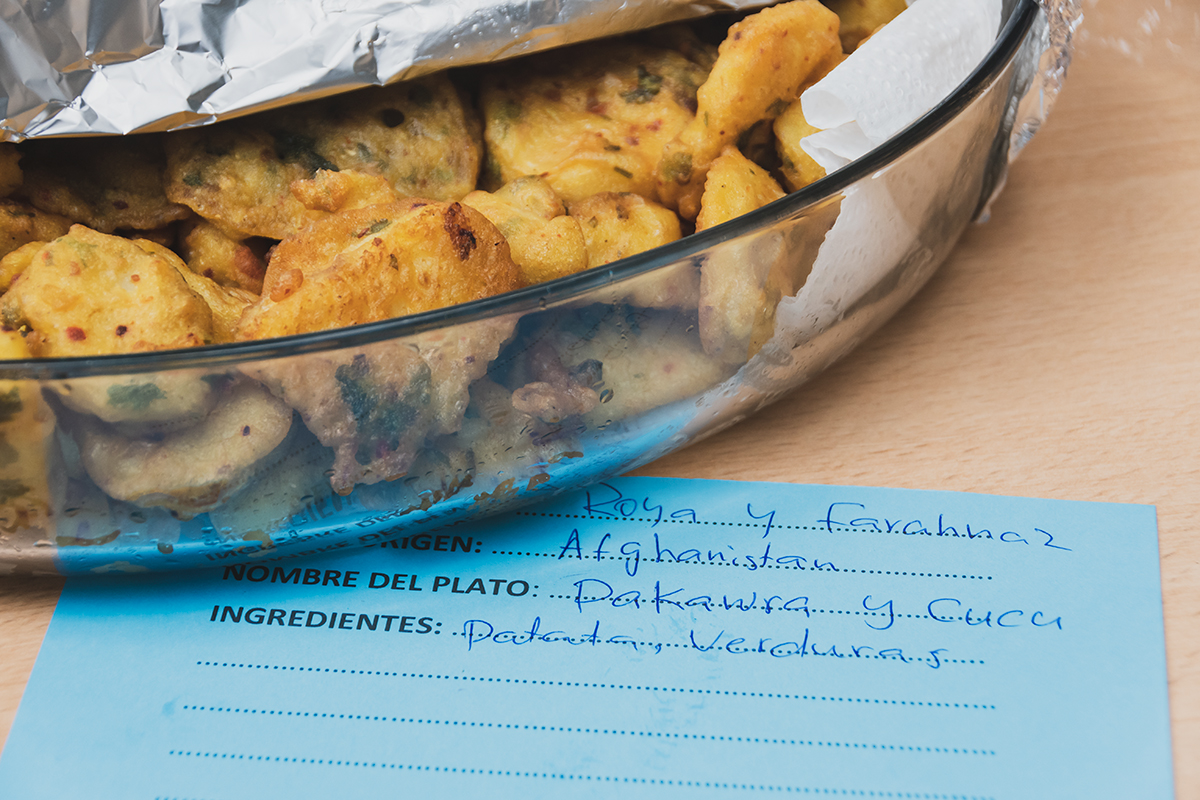 Roya y Farahnaz
ORIGEN: Afghanistan
NOMBRE DEL PLATO: Pakawra y Cucu
INGREDIENTES: Patata, Verduras